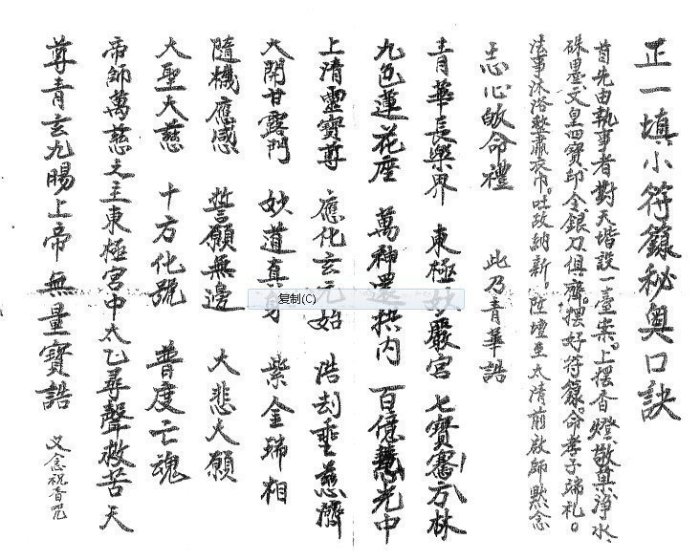 正一填小符籙秘奧口訣
首先由執事者對天堦設一臺案。上摆香燈敬菓淨水
硃墨文皇四寶印金銀刀俱齊。摆好符籙。命孝子端礼。
法事沐浴整肅衣巾。吐故納新。陞壇至太清前啟師默念
志心皈命禮 此乃青華誥
青華長樂界 東極妙嚴宮 七寶騫方林
九色蓮花座 萬神 內 百億慧光中
上清靈寶尊 應化玄元始 浩劫垂慈濟
大開甘露門 妙道真身 紫金瑞相
隨機應感 誓願無邊 大悲大願
大聖大慈 十方化號 普度亡魂
帝師萬慈之主東極宮中太乙尋聲救苦天
尊青玄九陽上帝無量寶誥 又念祝香咒
复制(C)